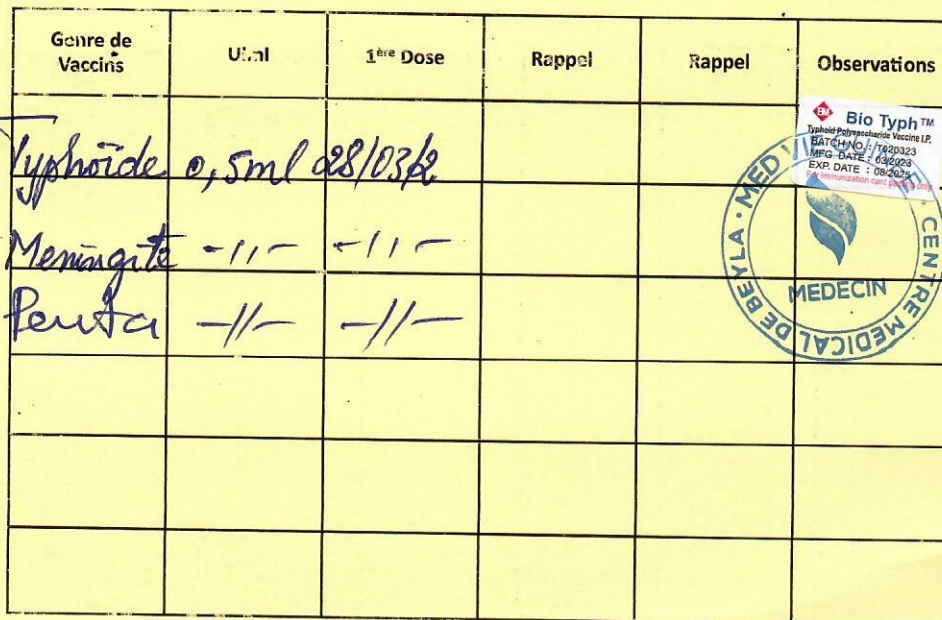 Genre de Vaccins UI.ml 1ère Dose Rappel Rappel Observations
Typhoïde 0,5ml 28/03/2
Meningite -//- -//-
Penta -//- -//-
BM Bio Typh™
Typhoid Polysaccharide Vaccine I.P.
BATCH NO. : T020323
MFG DATE : 03/2023
EXP. DATE : 08/2025
For Immunization card pasting only
MED VIE
CENTRE MEDICAL DE BEYLA
MEDECIN